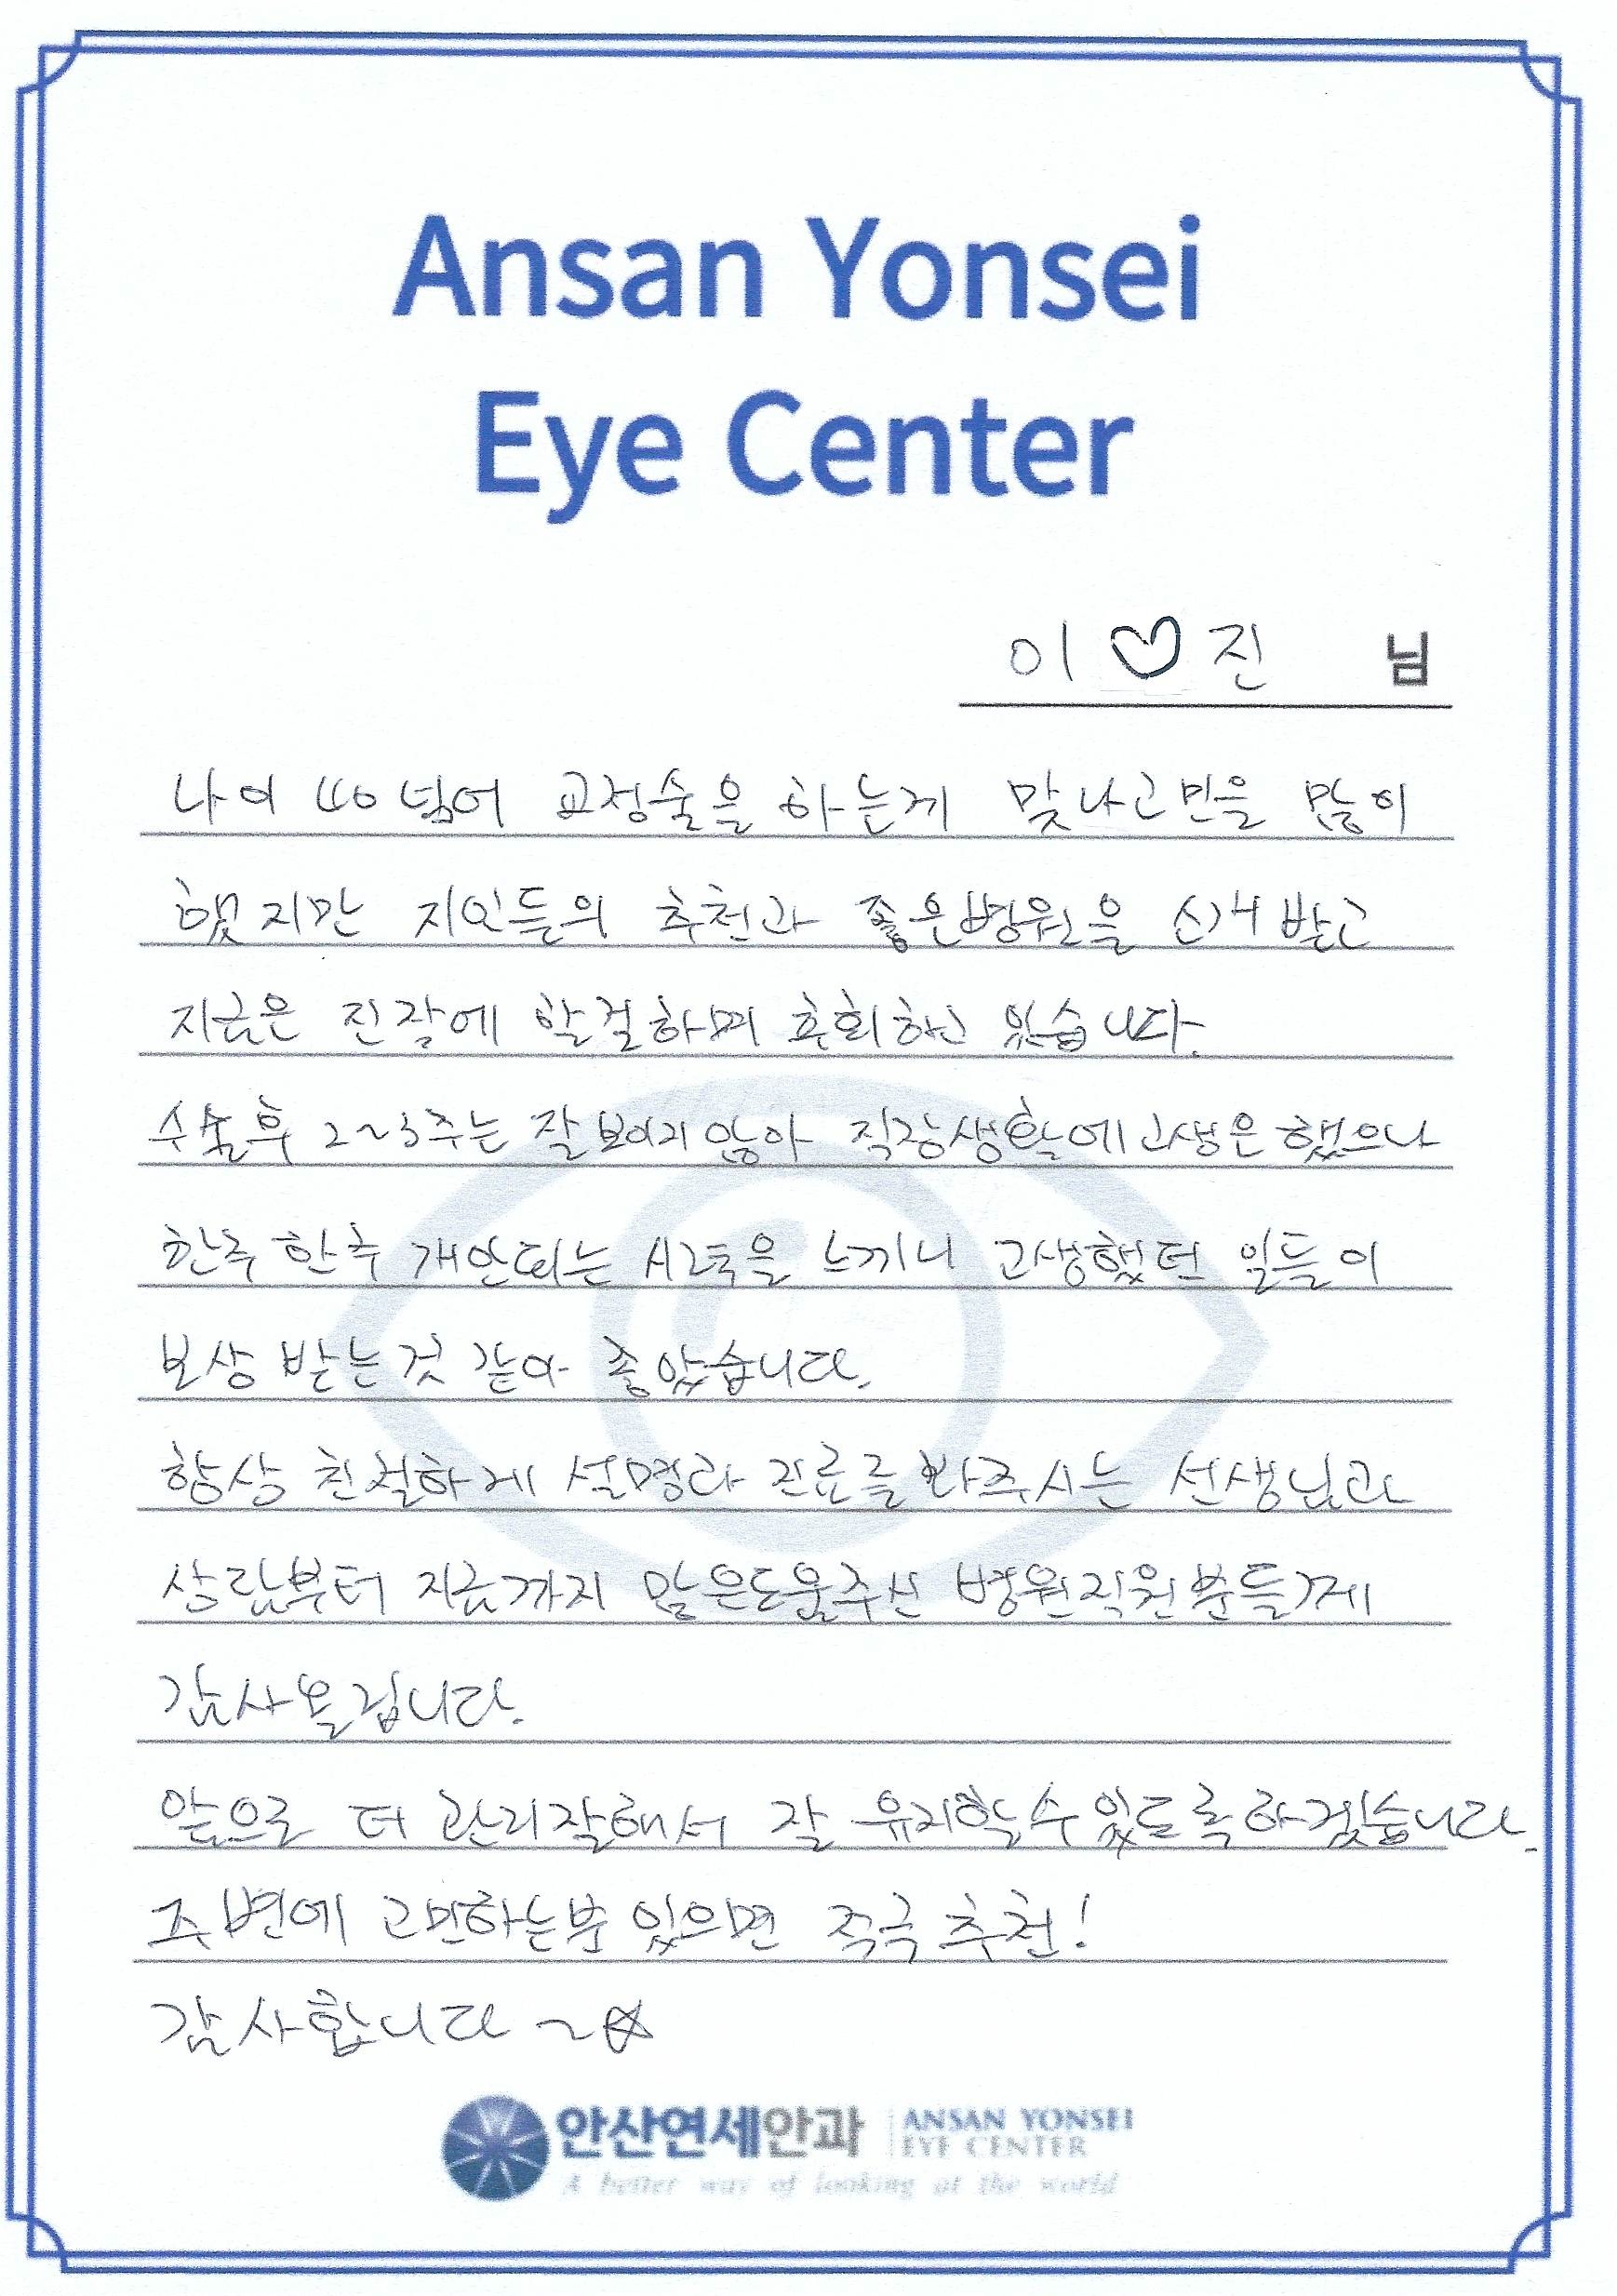 Ansan Yonsei
Eye Center
이♡진 님
나이 40 넘어 교정술을 하는게 맞나고민을 많이
했지만 지인들의 추천과 좋은병원을 소개 받고
지금은 진작에 할걸하며 후회하고 있습니다.
수술후 2~3주는 잘 보이지 않아 직장생활에 고생은 했으나
한주 한주 개안되는 시력을 느끼니 고생했던 일들이
보상 받는것 같아 좋았습니다.
항상 친절하게 설명과 진료를 봐주시는 선생님과
상담부터 지금까지 많은도움주신 병원직원분들께
감사올립니다.
앞으로 더 관리잘해서 잘 유지할수 있도록하겠습니다.
주변에 고민하는분 있으면 적극 추천!
감사합니다 ~☆
안산연세안과 ANSAN YONSEI
EYE CENTER
A better way of looking at the world